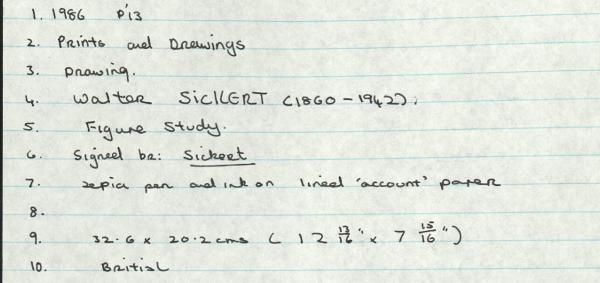 1. 1986 P'13
2. Prints and Drawings
3. Drawing.
4. Walter SICKERT (1860-1942).
5. Figure Study.
6. Signed br: Sickert
7. sepia pen and ink on lined 'account' paper
8.
9. 32.6 x 20.2 cms ( 12 13/16" x 7 15/16")
10. British